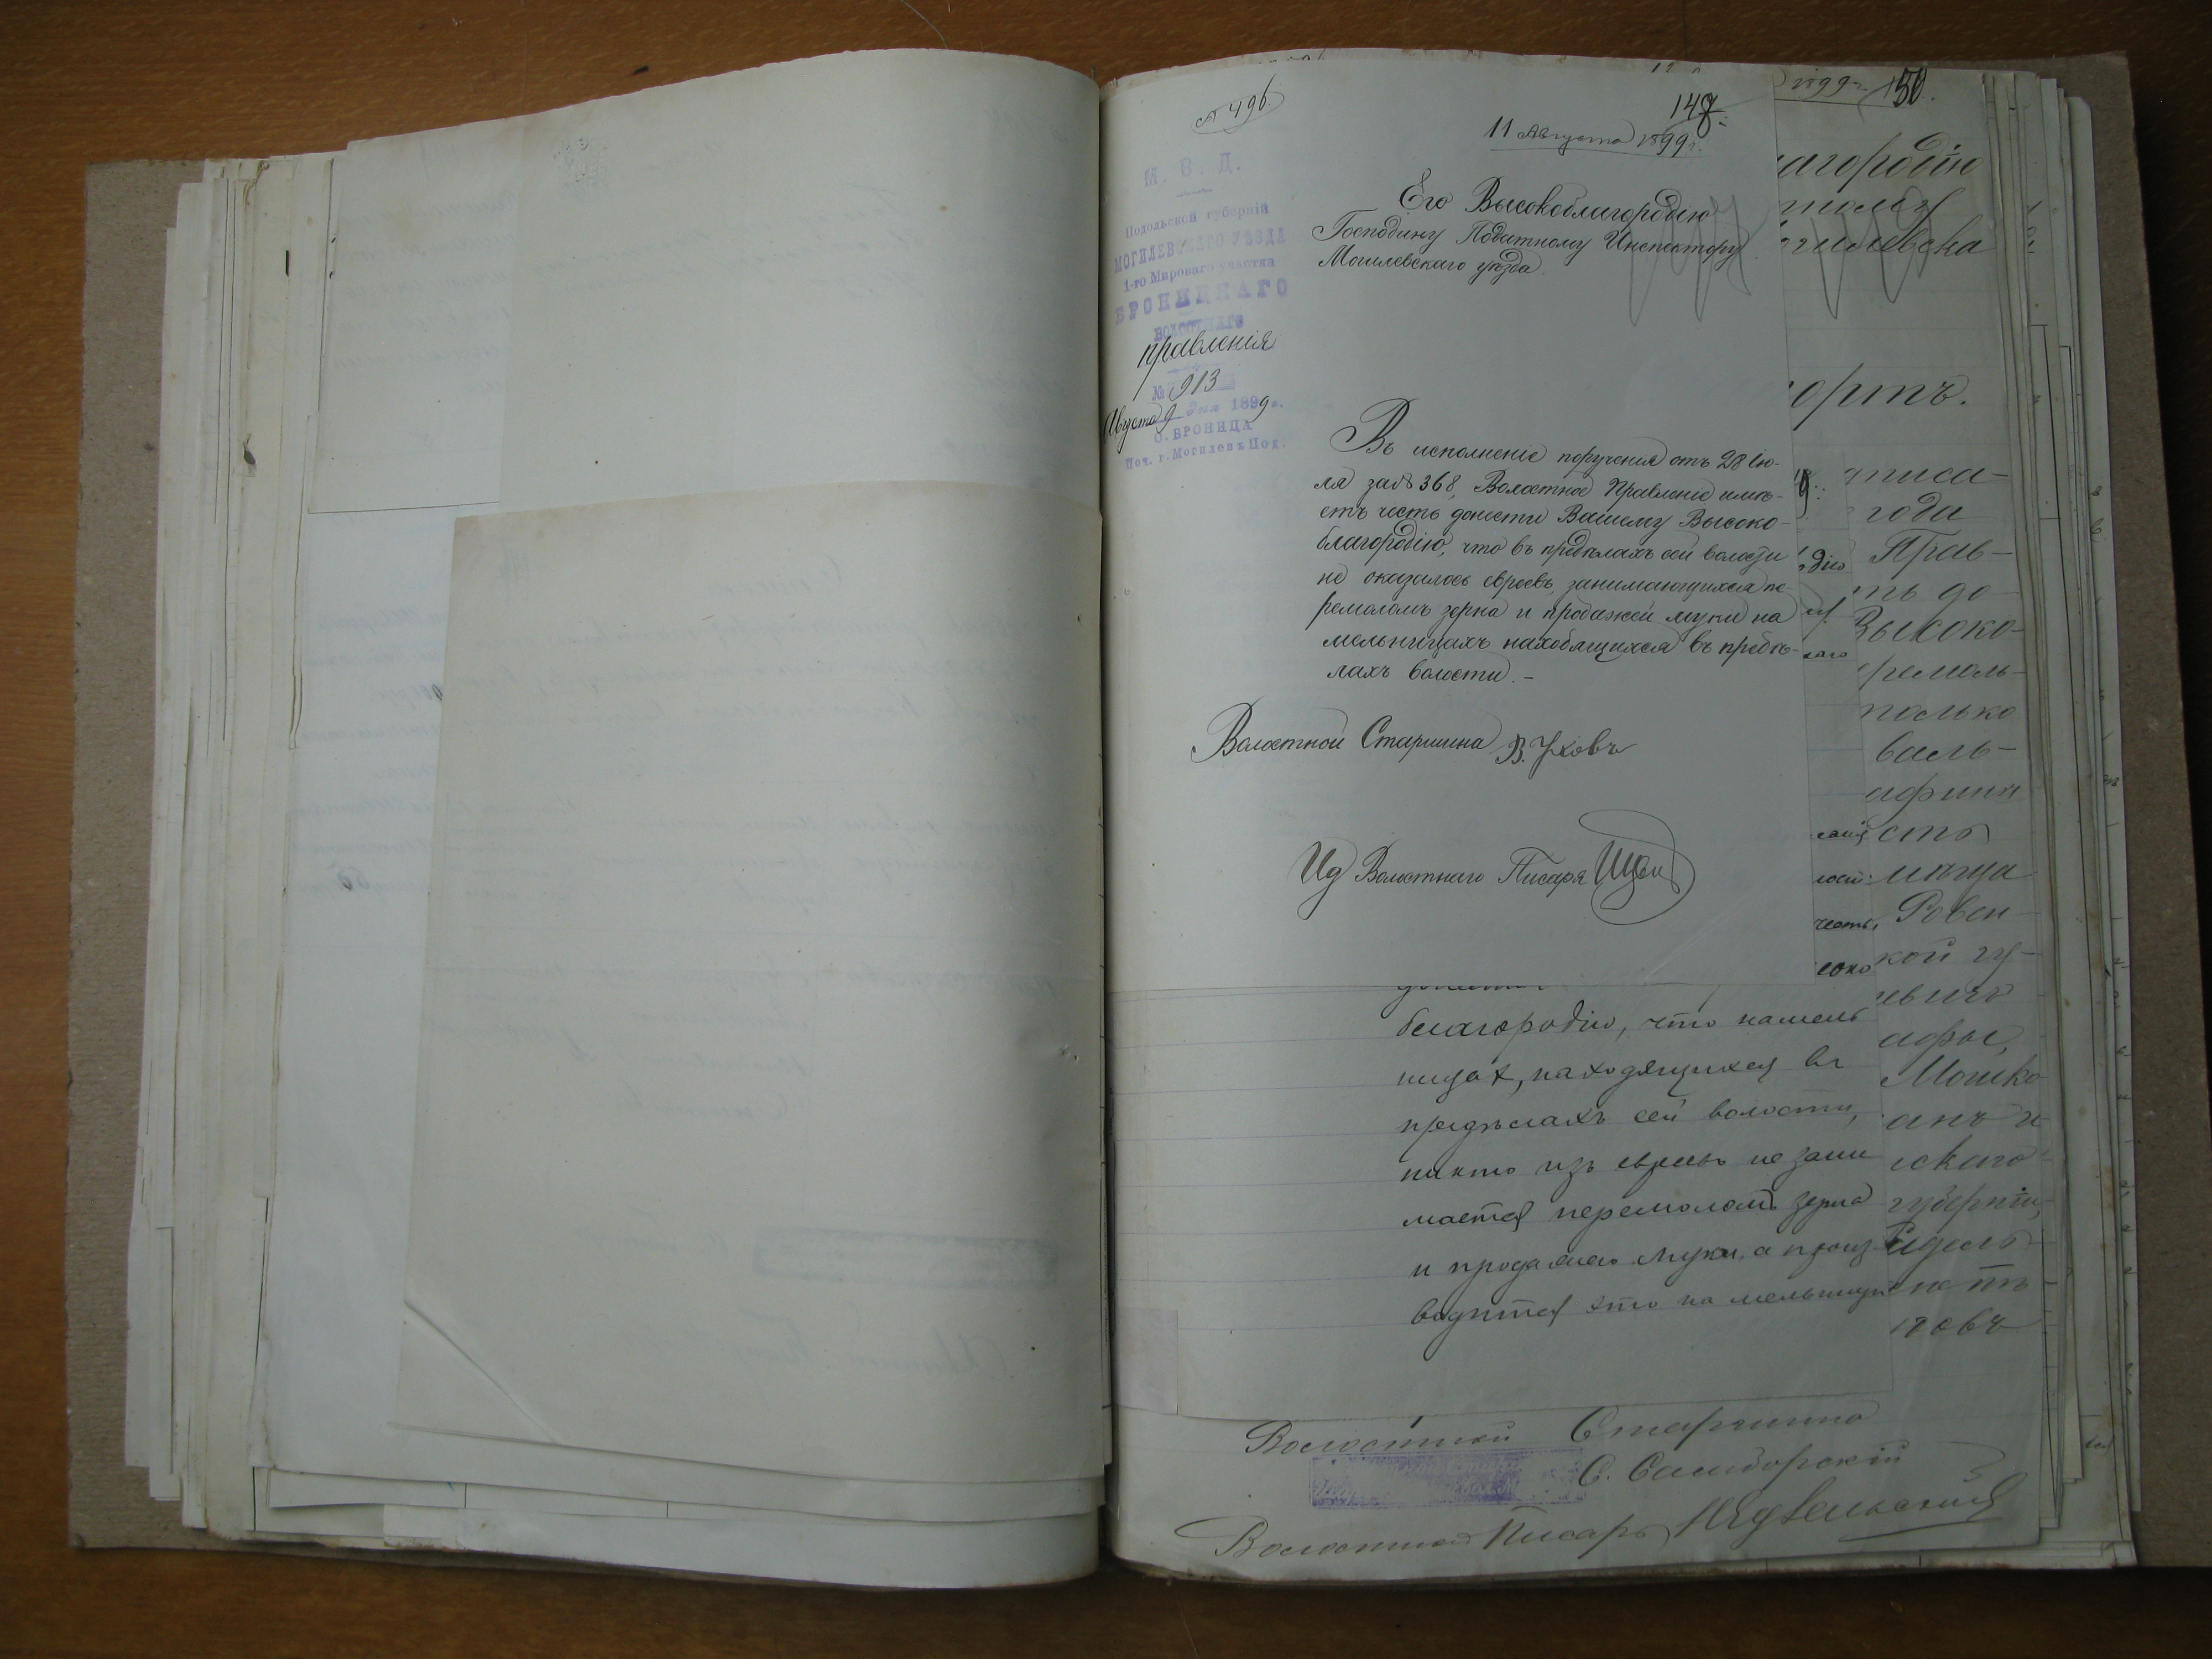 № 496
148
11 Августа 1899 г.
М. В. Д.
Подольской губерніи
МОГИЛЕВСКАГО УѢЗДА
1-го Мироваго участка
БРОНИЦКАГО
ВОЛОСТНАГО
правленія
№ 913
Августа 9 дня 1899 г.
с. БРОНИЦА
Поч. г. Могилевъ Под.
Его Высокоблагородію
Господину Податному Инспектору
Могилевскаго уѣзда
Въ исполненіе порученія отъ 28 Ію-
ля за № 368, Волостное Правленіе имѣ-
етъ честь донести Вашему Высоко-
благородію, что въ предѣлахъ сей волости
не оказалось евреевъ, занимающихся пе
ремоломъ зерна и продажей муки на
мельницахъ находящихся въ предѣ-
лахъ волости.-
Волостной Старшина В. Уховъ
Ид Волостнаго Писаря
благородію, что на мель
ницах, находящихся въ
предѣлахъ сей волости,
никто изъ евреевъ не зани
мается перемоломъ зерна
и продажею муки, а произ
водится это на мельницах
Волостной Старшина
С. Самборскій
Волостной Писарь Недѣльскій
1899 г. 150.
агородію
огилевска
ортъ.
писа-
года
Прав-
ть до-
Высоко-
ремоль-
только
валь-
сть
Ровен-
кой гу-
Мошко
анъ и
скаго
губерніи,